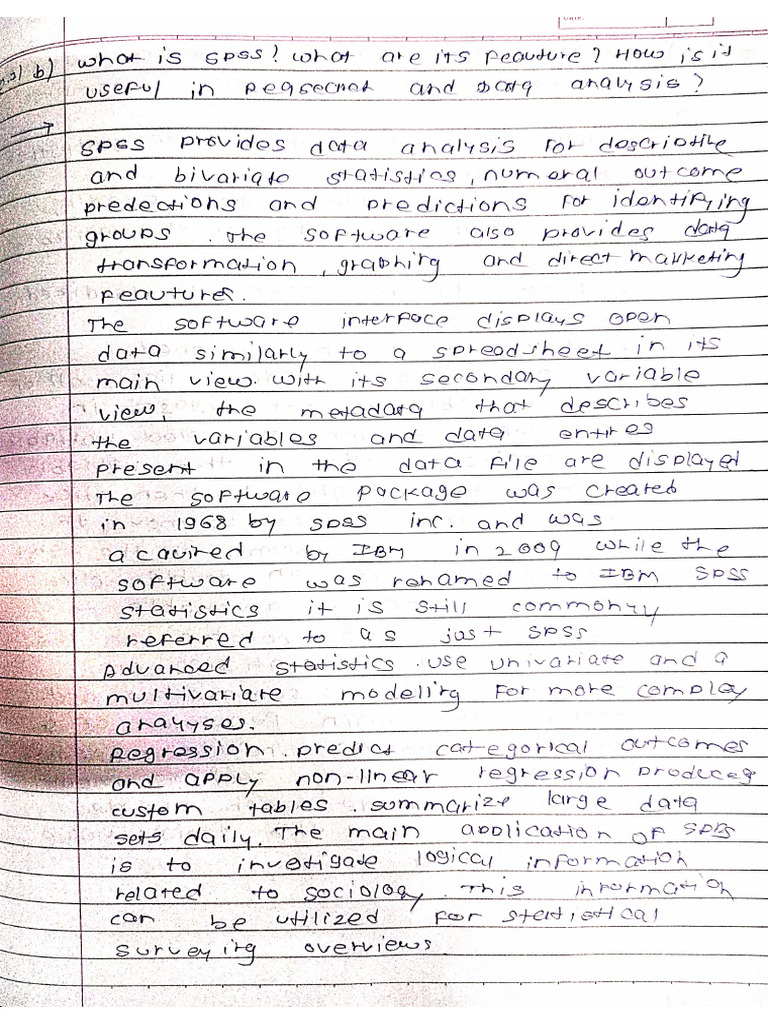 b) What is SPSS? What are its feauture? How is it
useful in Reasecrah and Data analysis?
→
SPSS provides data analysis for descriptive
and bivariate statistics, numeral outcome
predections and predictions for identifying
groups. The software also provides data
transformation, graphing and direct marketing
feautures.
The software interface displays open
data similarly to a spreadsheet in its
main view. with its secondary variable
view, the metadata that describes
the variables and data entires
present in the data file are displayed
The software package was created
in 1968 by SPSS inc. and was
acquired by IBM in 2009 while the
software was renamed to IBM SPSS
statistics it is still commonly
referred to as just SPSS
Advanced statistics. use univariate and a
multivariate modeling for more complex
analyses.
Regression. predict categorical outcomes
and apply non-linear regression produces
custom tables. summarize large data
sets daily. The main application of SPSS
is to investigate logical information
related to sociology. This information
can be utilized for statistical
surveying overviews.